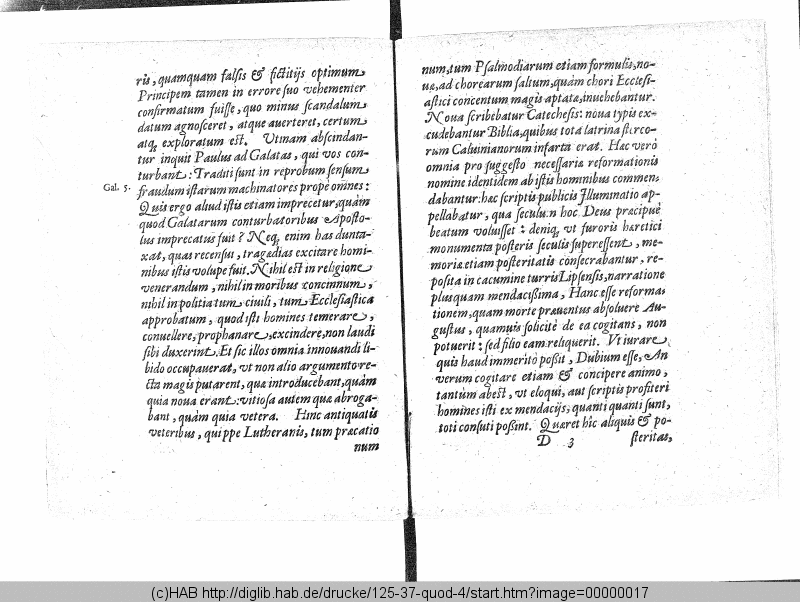 ris, quamquam falsis & fictitijs optimum
Principem tamen in errore suo vehementer
confirmatum fuisse, quo minus scandalum
datum agnosceret, atque auerteret, certum
atq; exploratum est. Vtinam abscindan-
tur inquit Paulus ad Galatas, qui vos con-
turbant: Traditi sunt in reprobum sensum
Gal. 5.
fraudum istarum machinatores propè omnes:
Quis ergo aliud istis etiam imprecetur, quàm
quod Galatarum conturbatoribus Aposto-
lus imprecatus fuit? Neq; enim has dunta-
xat, quas recensui, tragœdias excitare homi-
nibus istis volupe fuit. Nihil est in religione
venerandum, nihil in moribus concinnum,
nihil in politia tum ciuili, tum Ecclesiastica
approbatum, quod isti homines temerare,
conuellere, prophanare, excindere, non laudi
sibi duxerint. Et sic illos omnia innouandi li-
bido occupauerat, vt non alio argumento re-
cta magis putarent, quæ introducebant, quàm
quia noua erant: vitiosa autem quæ abroga-
bant, quàm quia vetera. Hinc antiquatis
veteribus, quippe Lutheranis, tum præcatio
num
num, tum Psalmodiarum etiam formulis, no-
uæ, ad chorearum saltum, quàm chori Ecclesi-
astici concentum magis aptatæ, inuehebantur.
Noua scribebatur Catechesis: noua typis ex-
cudebantur Biblia, quibus tota latrina sterco-
rum Caluinianorum infarta erat. Hæc verò
omnia pro suggesto necessaria reformationis
nomine identidem ab istis hominibus commen-
dabantur: hæc scriptis publicis Illuminatio ap-
pellabatur, qua seculum hoc Deus præcipuè
beatum voluisset: deniq; vt furoris hæretici
monumenta posteris seculis superessent, me-
moriæ etiam posteritatis consecrabantur, re-
posita in cacumine turris Lipsensis, narratione
plusquam mendacissima, Hanc esse reforma-
tionem, quam morte præuentus absoluere Au-
gustus, quamuis solicitè de ea cogitans, non
potuerit: sed filio eam reliquerit. Vt iurare
quis haud immeritò possit, Dubium esse, An
verum cogitare etiam & concipere animo,
tantùm abest, vt eloqui, aut scriptis profiteri
homines isti ex mendacijs, quanti quanti sunt,
toti consuti possint. Quæret hîc aliquis & po-
D 3 steritas,
(c)HAB http://diglib.hab.de/drucke/125-37-quod-4/start.htm?image=00000017